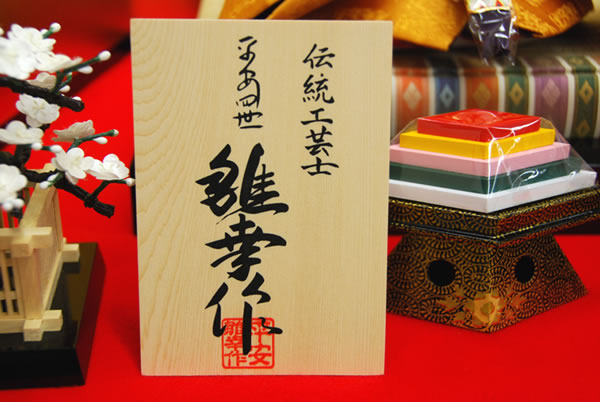 伝統工芸士
平安四世
雛幸作
平安
雛幸作